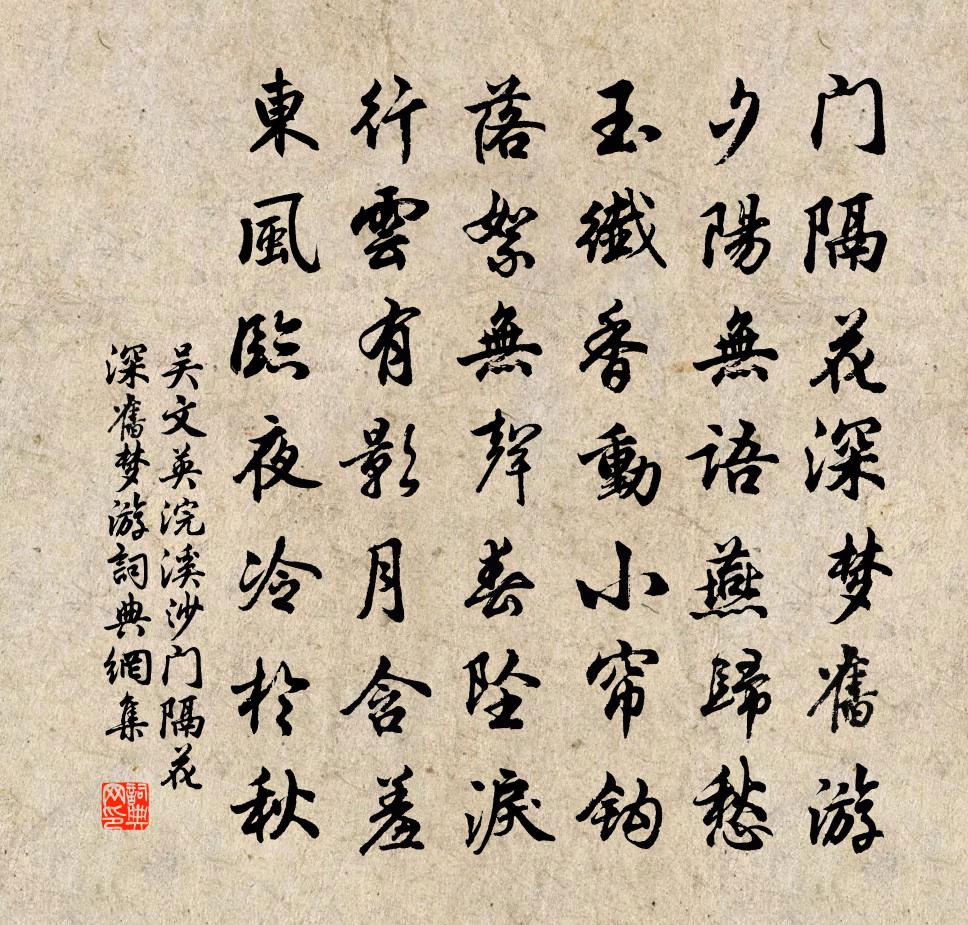 门隔花深梦舊游
夕陽無語燕歸愁
玉纖香動小帘鈎
落絮無聲春墜淚
行雲有影月含羞
東風臨夜冷於秋
吴文英浣溪沙门隔花
深舊梦游詞典網集
詞典网印